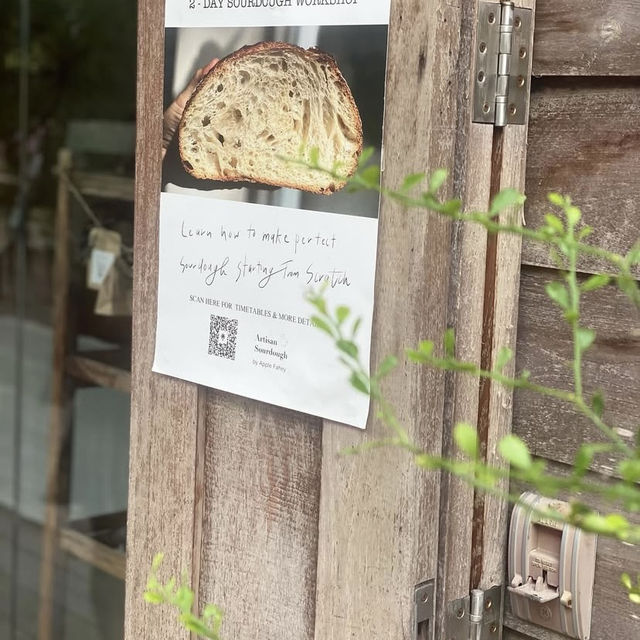 2 - DAY SOURDOUGH WORKSHOP
Learn how to make perfect
sourdough starting from scratch
SCAN HERE FOR TIMETABLES & MORE DETAILS
Artisan
Sourdough
by Apple Fahey